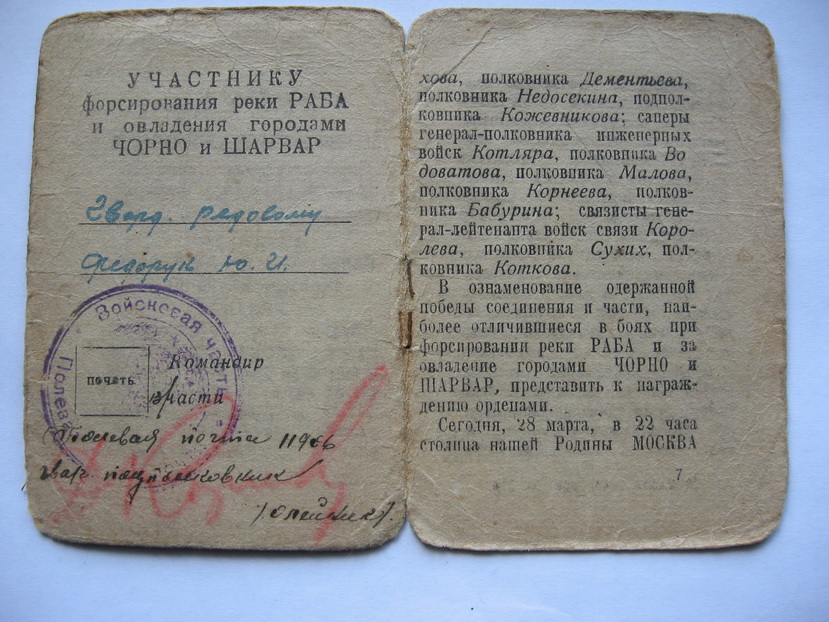 УЧАСТНИКУ
форсирования реки РАБА
и овладения городами
ЧОРНО и ШАРВАР
Гвард. рядовому
Федорук Ю. И.
Войсковая часть
Полевая
печать
Командир
части
Полевая почта 11966
гвар. подполковник
/Олейник/.
хова, полковника Дементьева,
полковника Недосекина, подпол-
ковника Кожевникова; саперы
генерал-полковника инженерных
войск Котляра, полковника Во
доватова, полковника Малова,
полковника Корнеева, полков-
ника Бабурина; связисты гене-
рал-лейтенанта войск связи Коро-
лева, полковника Сухих, пол-
ковника Коткова.
В ознаменование одержанной
победы соединения и части, наи-
более отличившиеся в боях при
форсировании реки РАБА и за
овладение городами ЧОРНО и
ШАРВАР, представить к награж-
дению орденами.
Сегодня, 28 марта, в 22 часа
столица нашей Родины МОСКВА
7